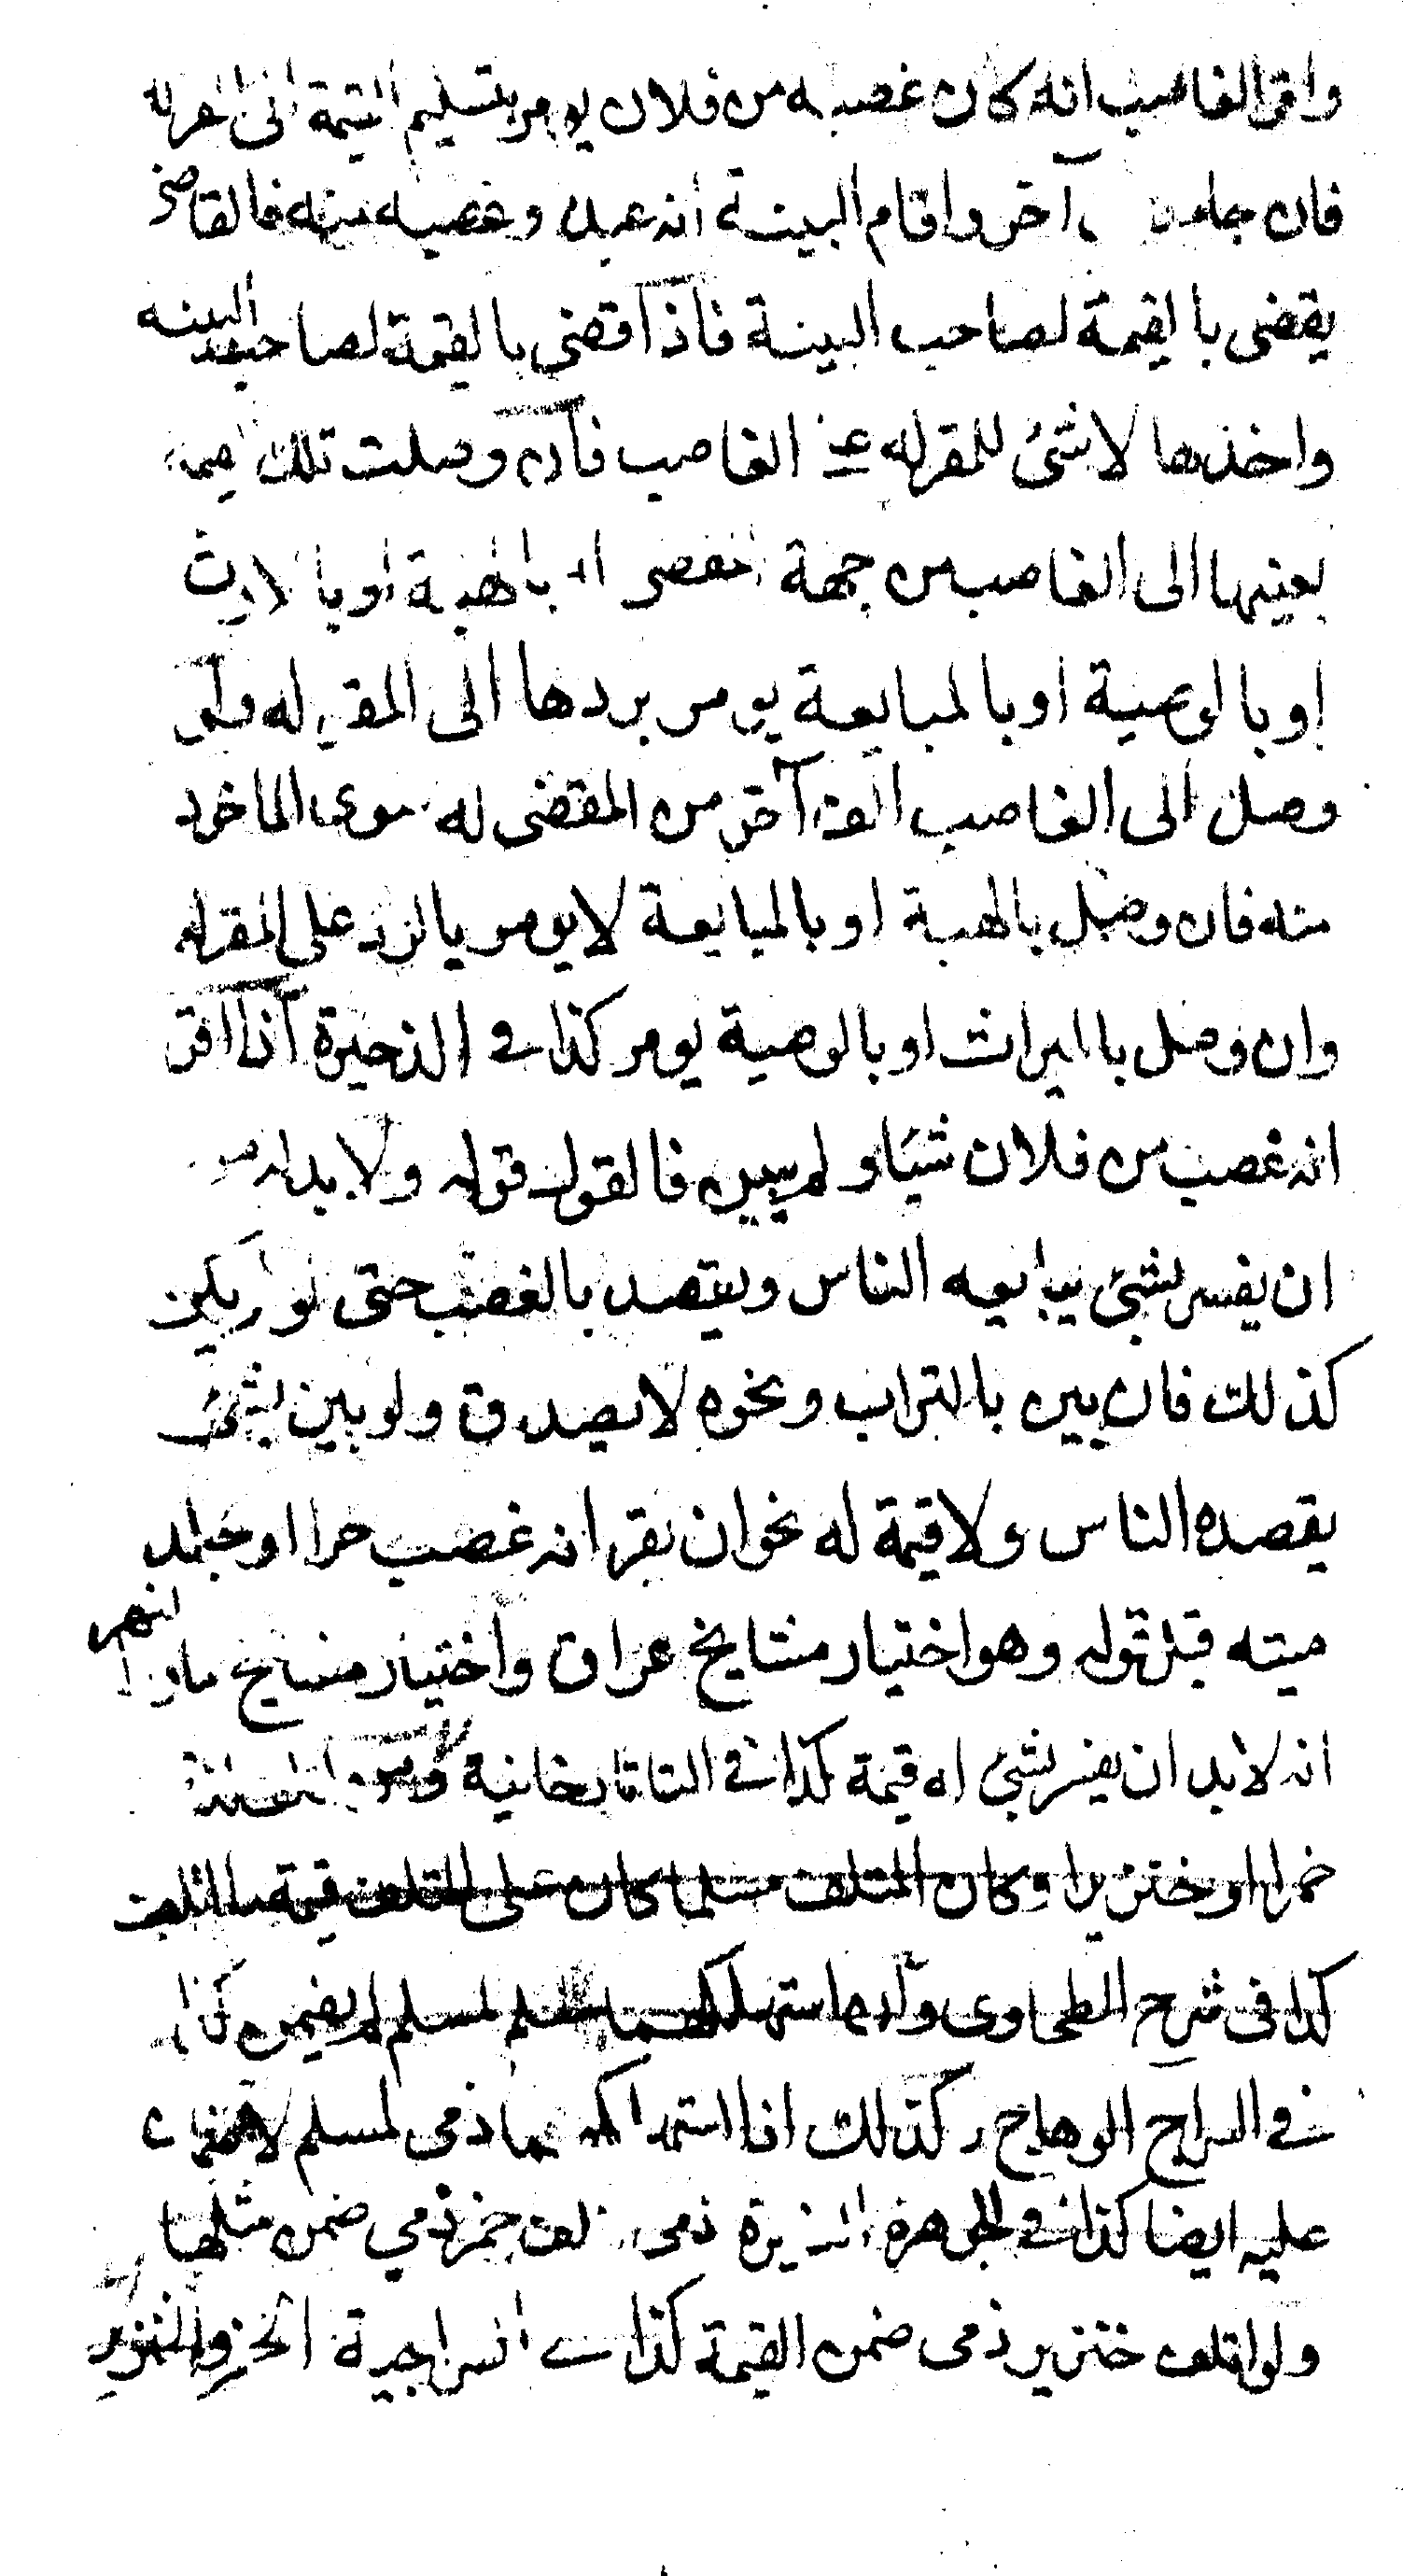 واقر الغاصب انه كان غصبه من فلان يومر بتسليم القيمة الى المقر له
فان جاء آخر واقام البينة انه عبده وغصبه منه فالقاضى
يقضى بالقيمة لصاحب البينة فاذا قضى بالقيمة لصاحب البينه
واخذها لا شئ للمقر له على الغاصب فان وصلت تلك القيمة
بعينها الى الغاصب من جهة المقضى له بالهبة او بالارث
او بالوصية او بالمبايعة يومر بردها الى المقر له ولو
وصل الى الغاصب الف آخر من المقضى له سوى الماخوذ
منه فان وصل بالهبة او بالمبايعة لا يومر بالرد على المقر له
وان وصل بالميراث او بالوصية يومر كذا فى الذخيرة اذا اقر
انه غصب من فلان شيئا و لم يبين فالقول قوله ولا بد له من
ان يفسر بشئ يبايعه الناس ويقصد بالغصب حتى لو لم يكن
كذلك فان بين بالتراب ونحوه لا يصدق ولو بين بشئ
يقصده الناس ولا قيمة له نحو ان يقر انه غصب حرا او جلد
ميته قبل قوله وهو اختيار مشايخ عراق واختيار مشايخ ماوراء النهر
انه لا بد ان يفسر بشئ له قيمة كذا فى التاتارخانية
خمرا او خنزيرا وكان المتلف مسلما كان على المتلف قيمة ما اتلف
كذا فى شرح الطحاوى وان استهلكهما مسلم لمسلم لم يضمن كذا
فى السراج الوهاج وكذلك اذا استهلكهما ذمى لمسلم لا ضمان
عليه ايضا كذا فى الجوهرة النيرة ذمى اتلف خمر ذمي ضمن مثلها
ولو اتلف خنزير ذمى ضمن القيمة كذا فى السراجية الخمر والخنزير